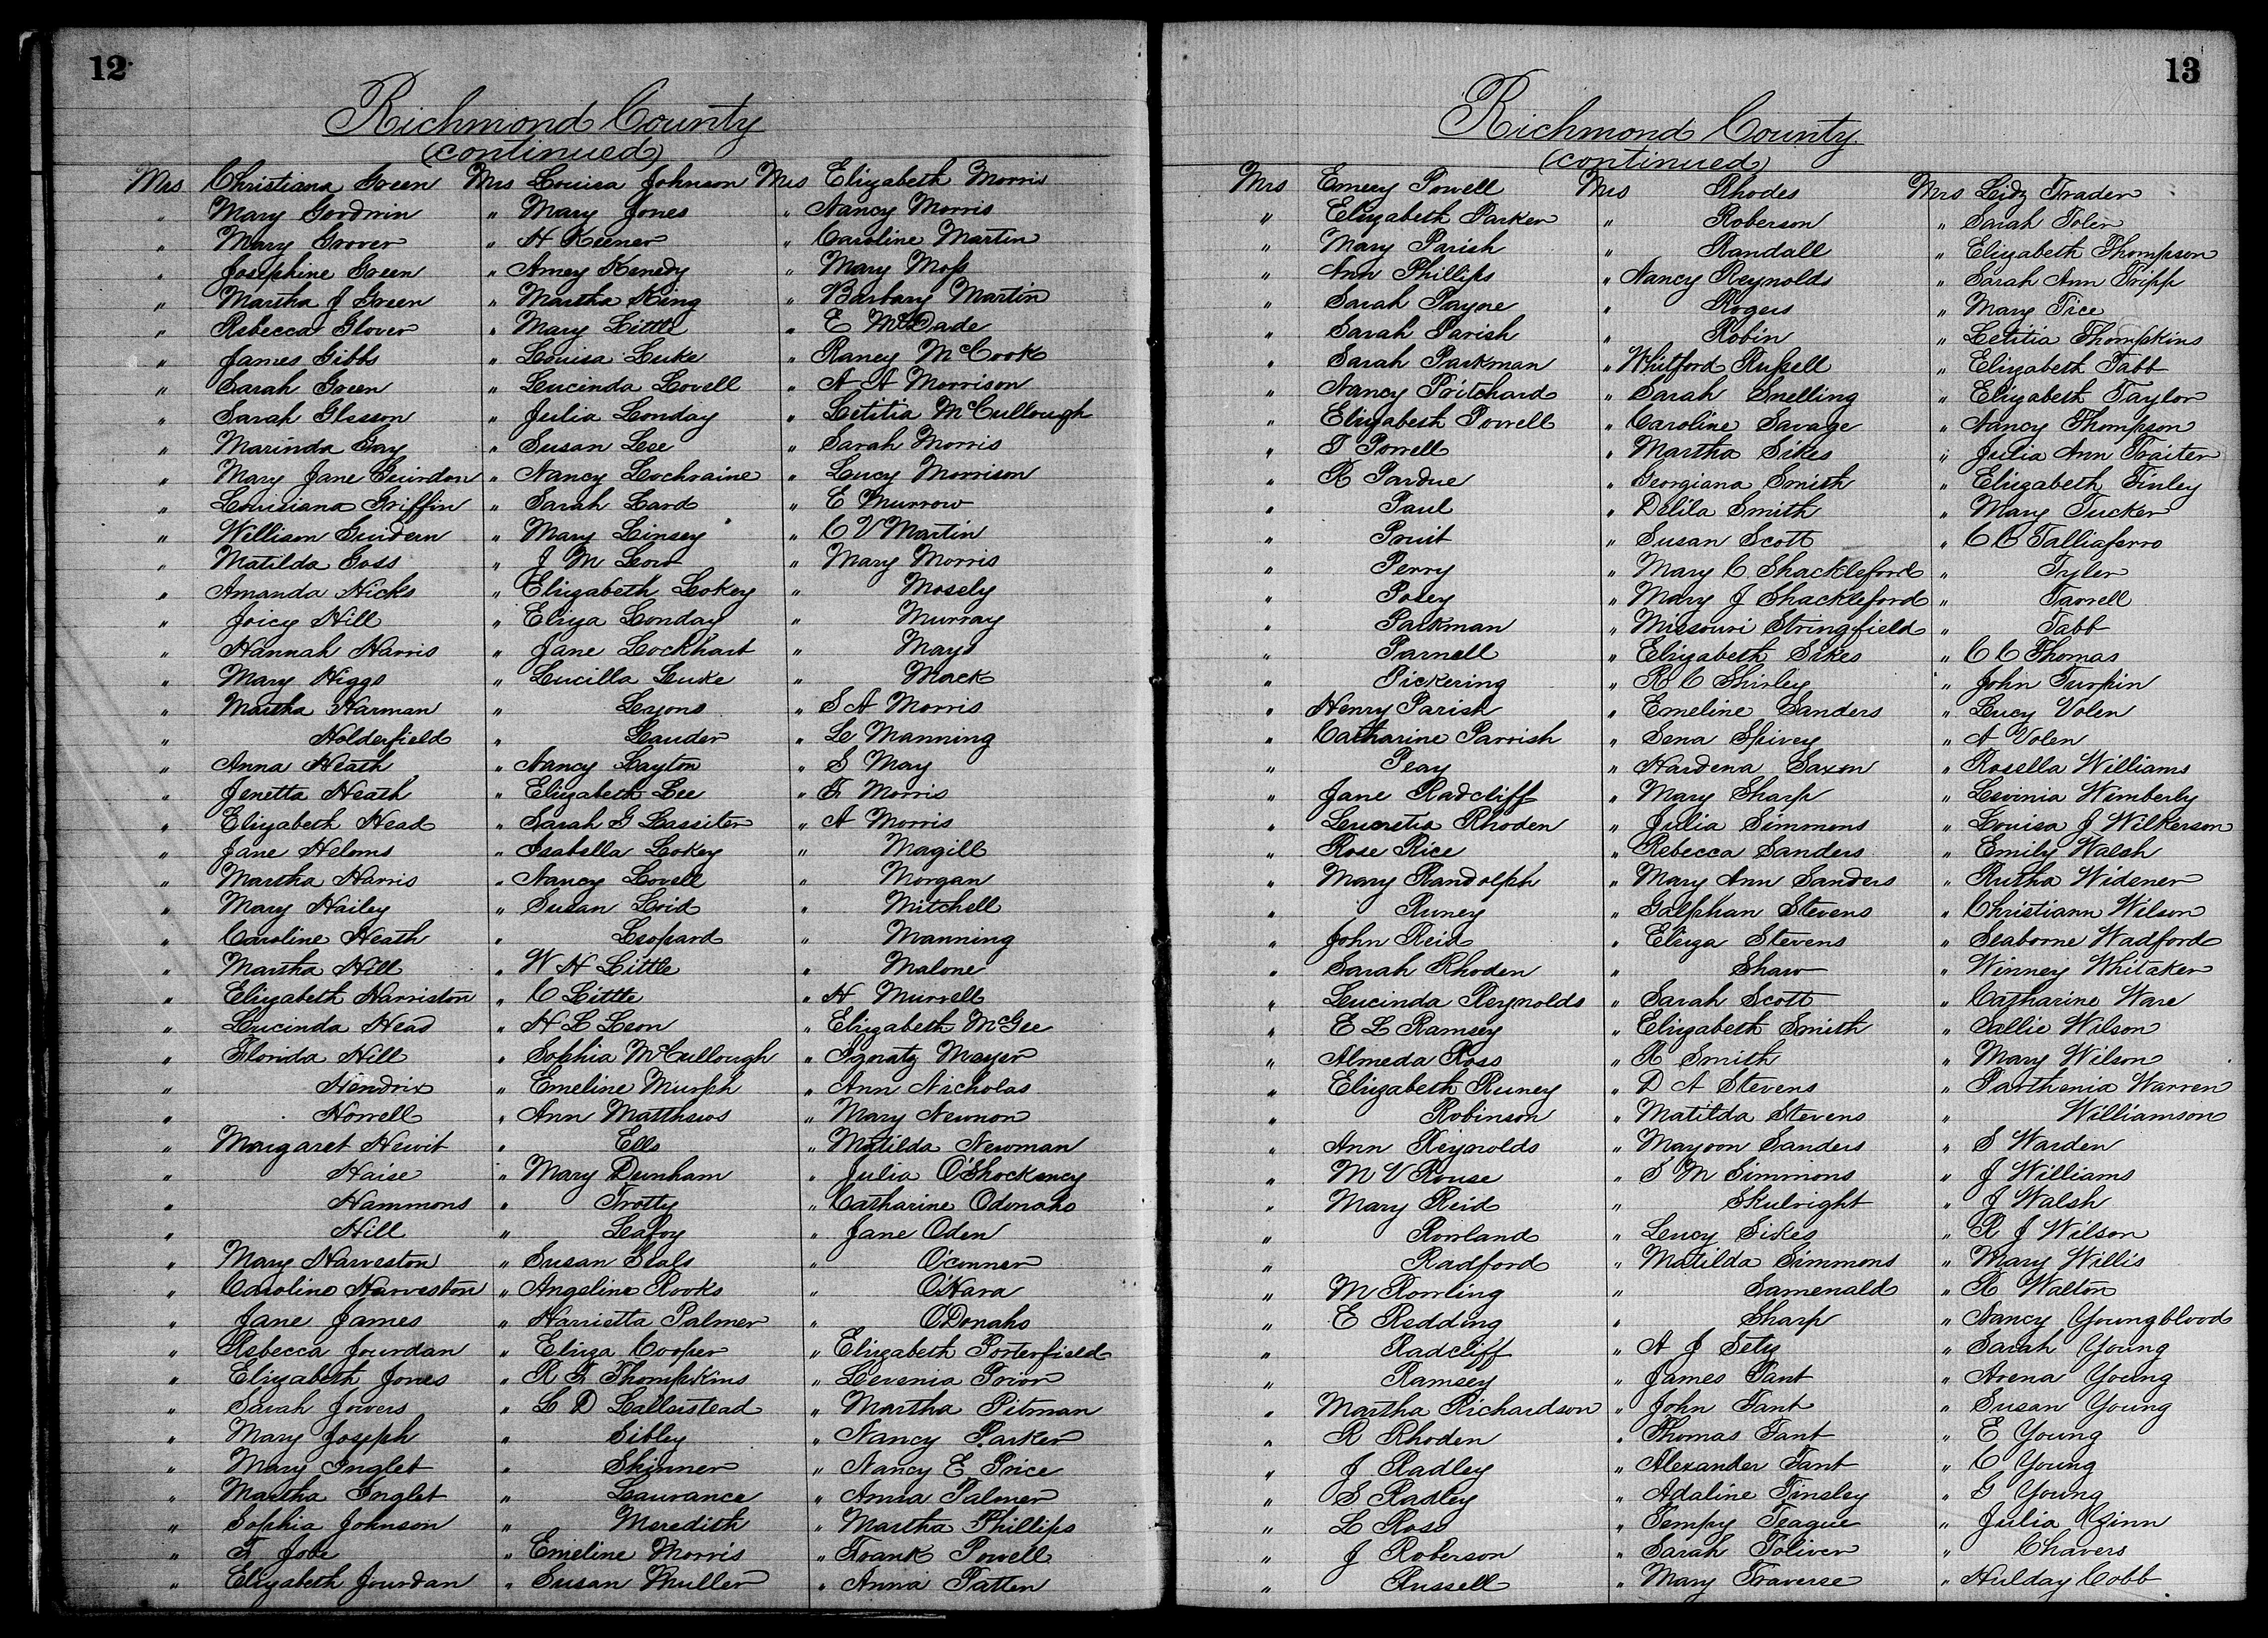 12
Richmond County
(continued)
Mrs Christiana Green Mrs Louisa Johnson Mrs Elizabeth Morris
" Mary Goodwin " Mary Jones " Nancy Morris
" Mary Grover " H Keener " Caroline Martin
" Josephine Green " Amey Kenedy " Mary Moss
" Martha J Green " Martha King " Barbary Martin
" Rebecca Glover " Mary Little " E McDade
" James Gibbs " Louisa Luke " Raney McCook
" Sarah Green " Lucinda Lovell " A A Morrison
" Sarah Glesson " Julia Londay " Letitia McCullough
" Marinda Gay " Susan Lee " Sarah Morris
" Mary Jane Guirdon " Nancy Lochraine " Lucy Morrison
" Louisiana Griffin " Sarah Lard " E Murrow
" William Guidern " Mary Linsey " C V Martin
" Matilda Goss " J M Low " Mary Morris
" Amanda Hicks " Elizabeth Lokey " Mosely
" Joicy Hill " Eliza Londay " Murray
" Hannah Harris " Jane Lockhart " Mays
" Mary Higgs " Lucilla Luke " Mack
" Martha Harman " Lyons " S A Morris
" Holderfield " Lauder " Le Manning
" Anna Heath " Nancy Layton " S May
" Jenetta Heath " Elizabeth Lee " F Morris
" Elizabeth Head " Sarah G Lassiter " A Morris
" Jane Heloms " Isabella Lokey " Magill
" Martha Harris " Nancy Lovell " Morgan
" Mary Hailey " Susan Loid " Mitchell
" Caroline Heath " Leopard " Manning
" Martha Hill " W H Little " Malone
" Elizabeth Harriston " C Little " H Murrell
" Lucinda Head " H L Leon " Elizabeth McGee
" Florida Hill " Sophia McCullough " Ignatz Mayer
" Hendrix " Emeline Murph " Ann Nicholas
" Howell " Ann Matthews " Mary Newnon
" Margaret Hewit " Ells " Matilda Newman
" Haise " Mary Dunham " Julia O'Shockency
" Hammons " Trotty " Catharine Odonaho
" Hill " Lafoy " Jane Oden
" Mary Harveston " Susan Seals " O'conner
" Caroline Harveston " Angeline Rooks " O'Hara
" Jane James " Harrietta Palmer " ODonaho
" Rebecca Jourdan " Eliza Cooper " Elizabeth Porterfield
" Elizabeth Jones " R F Thompkins " Levenia Prior
" Sarah Jowers " L D Lallerstead " Martha Pitman
" Mary Joseph " Sibley " Nancy Parker
" Mary Inglet " Skinner " Nancy E Price
" Martha Inglet " Laurance " Anna Palmer
" Sophia Johnson " Meredith " Martha Phillips
" F Jobe " Emeline Morris " Frank Powell
" Elizabeth Jourdan " Susan Muller " Anna Patten
13
Richmond County
(continued)
Mrs Emery Powell Mrs Rhodes Mrs Lidz Trader
" Elizabeth Parker " Roberson " Sarah Toler
" Mary Parish " Randall " Elizabeth Thompson
" Ann Phillips " Nancy Reynolds " Sarah Ann Tripp
" Sarah Payne " Rogers " Mary Tice
" Sarah Parish " Robin " Letitia Thompkins
" Sarah Parkman " Whitford Russell " Elizabeth Tabb
" Nancy Pritchard " Sarah Snelling " Elizabeth Taylor
" Elizabeth Powell " Caroline Savage " Nancy Thompson
" T Powell " Martha Sikes " Julia Ann Traiter
" R Pardue " Georgiana Smith " Elizabeth Tinley
" Paul " Delila Smith " Mary Tucker
" Pruit " Susan Scott " C C Talliaferro
" Perry " Mary C Shackleford " Tyler
" Posey " Mary J Shackleford " Tarrell
" Parkman " Missouri Stringfield " Tabb
" Parnell " Elizabeth Sikes " C C Thomas
" Pickering " R C Shirley " John Turpin
" Henry Parish " Emeline Sanders " Lucy Volen
" Catharine Parrish " Sena Spivey " A Volen
" Peay " Hardena Saxon " Rosella Williams
" Jane Radcliff " Mary Sharp " Levinia Wimberly
" Lucretia Rhoden " Julia Simmons " Louisa J Wilkerson
" Rose Rice " Rebecca Sanders " Emily Walsh
" Mary Randolph " Mary Ann Sanders " Rutha Widener
" Runey " Galphan Stevens " Christiann Wilson
" John Reid " Eliza Stevens " Seaborne Wadford
" Sarah Rhoden " Shaw " Winney Whitaker
" Lucinda Reynolds " Sarah Scott " Catharine Ware
" E L Ramsey " Elizabeth Smith " Sallie Wilson
" Almeda Ross " R Smith " Mary Wilson
" Elizabeth Runey " D A Stevens " Parthenia Warren
" Robinson " Matilda Stevens " Williamson
" Ann Reynolds " Mayoon Sanders " S Warden
" M V Rouse " S M Simmons " J Williams
" Mary Reid " Skulright " J Walsh
" Rowland " Lucy Sikes " R J Wilson
" Radford " Matilda Simmons " Mary Willis
" M Rowling " Samenald " R Walton
" E Redding " Sharp " Nancy Youngblood
" Radcliff " A J Sety " Sarah Young
" Ramsey " James Tant " Arena Young
" Martha Richardson " John Tant " Susan Young
" R Rhoden " Thomas Tant " E Young
" J Radley " Alexander Tant " C Young
" S Radley " Adaline Tinsley " G Young
" L Ross " Tempy Teague " Julia Zinn
" J Roberson " Sarah Toliver " Chavers
" Russell " Mary Traverse " Hulday Cobb